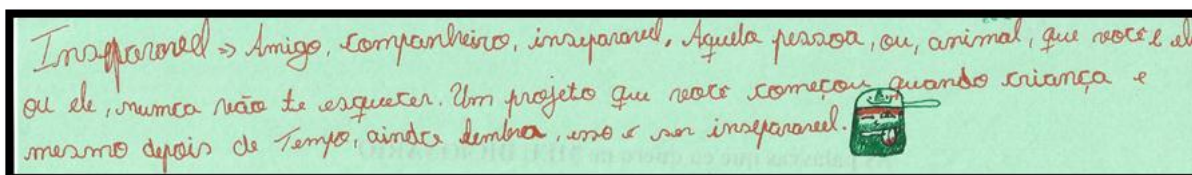 Inseparavel => Amigo, companheiro, inseparavel. Aquela pessoa, ou, animal, que você e el
ou ele, numca vão te esquecer. Um projeto que você começou quando criança e
mesmo depois de Tempo, ainda lembra, isso é ser inseparavel.